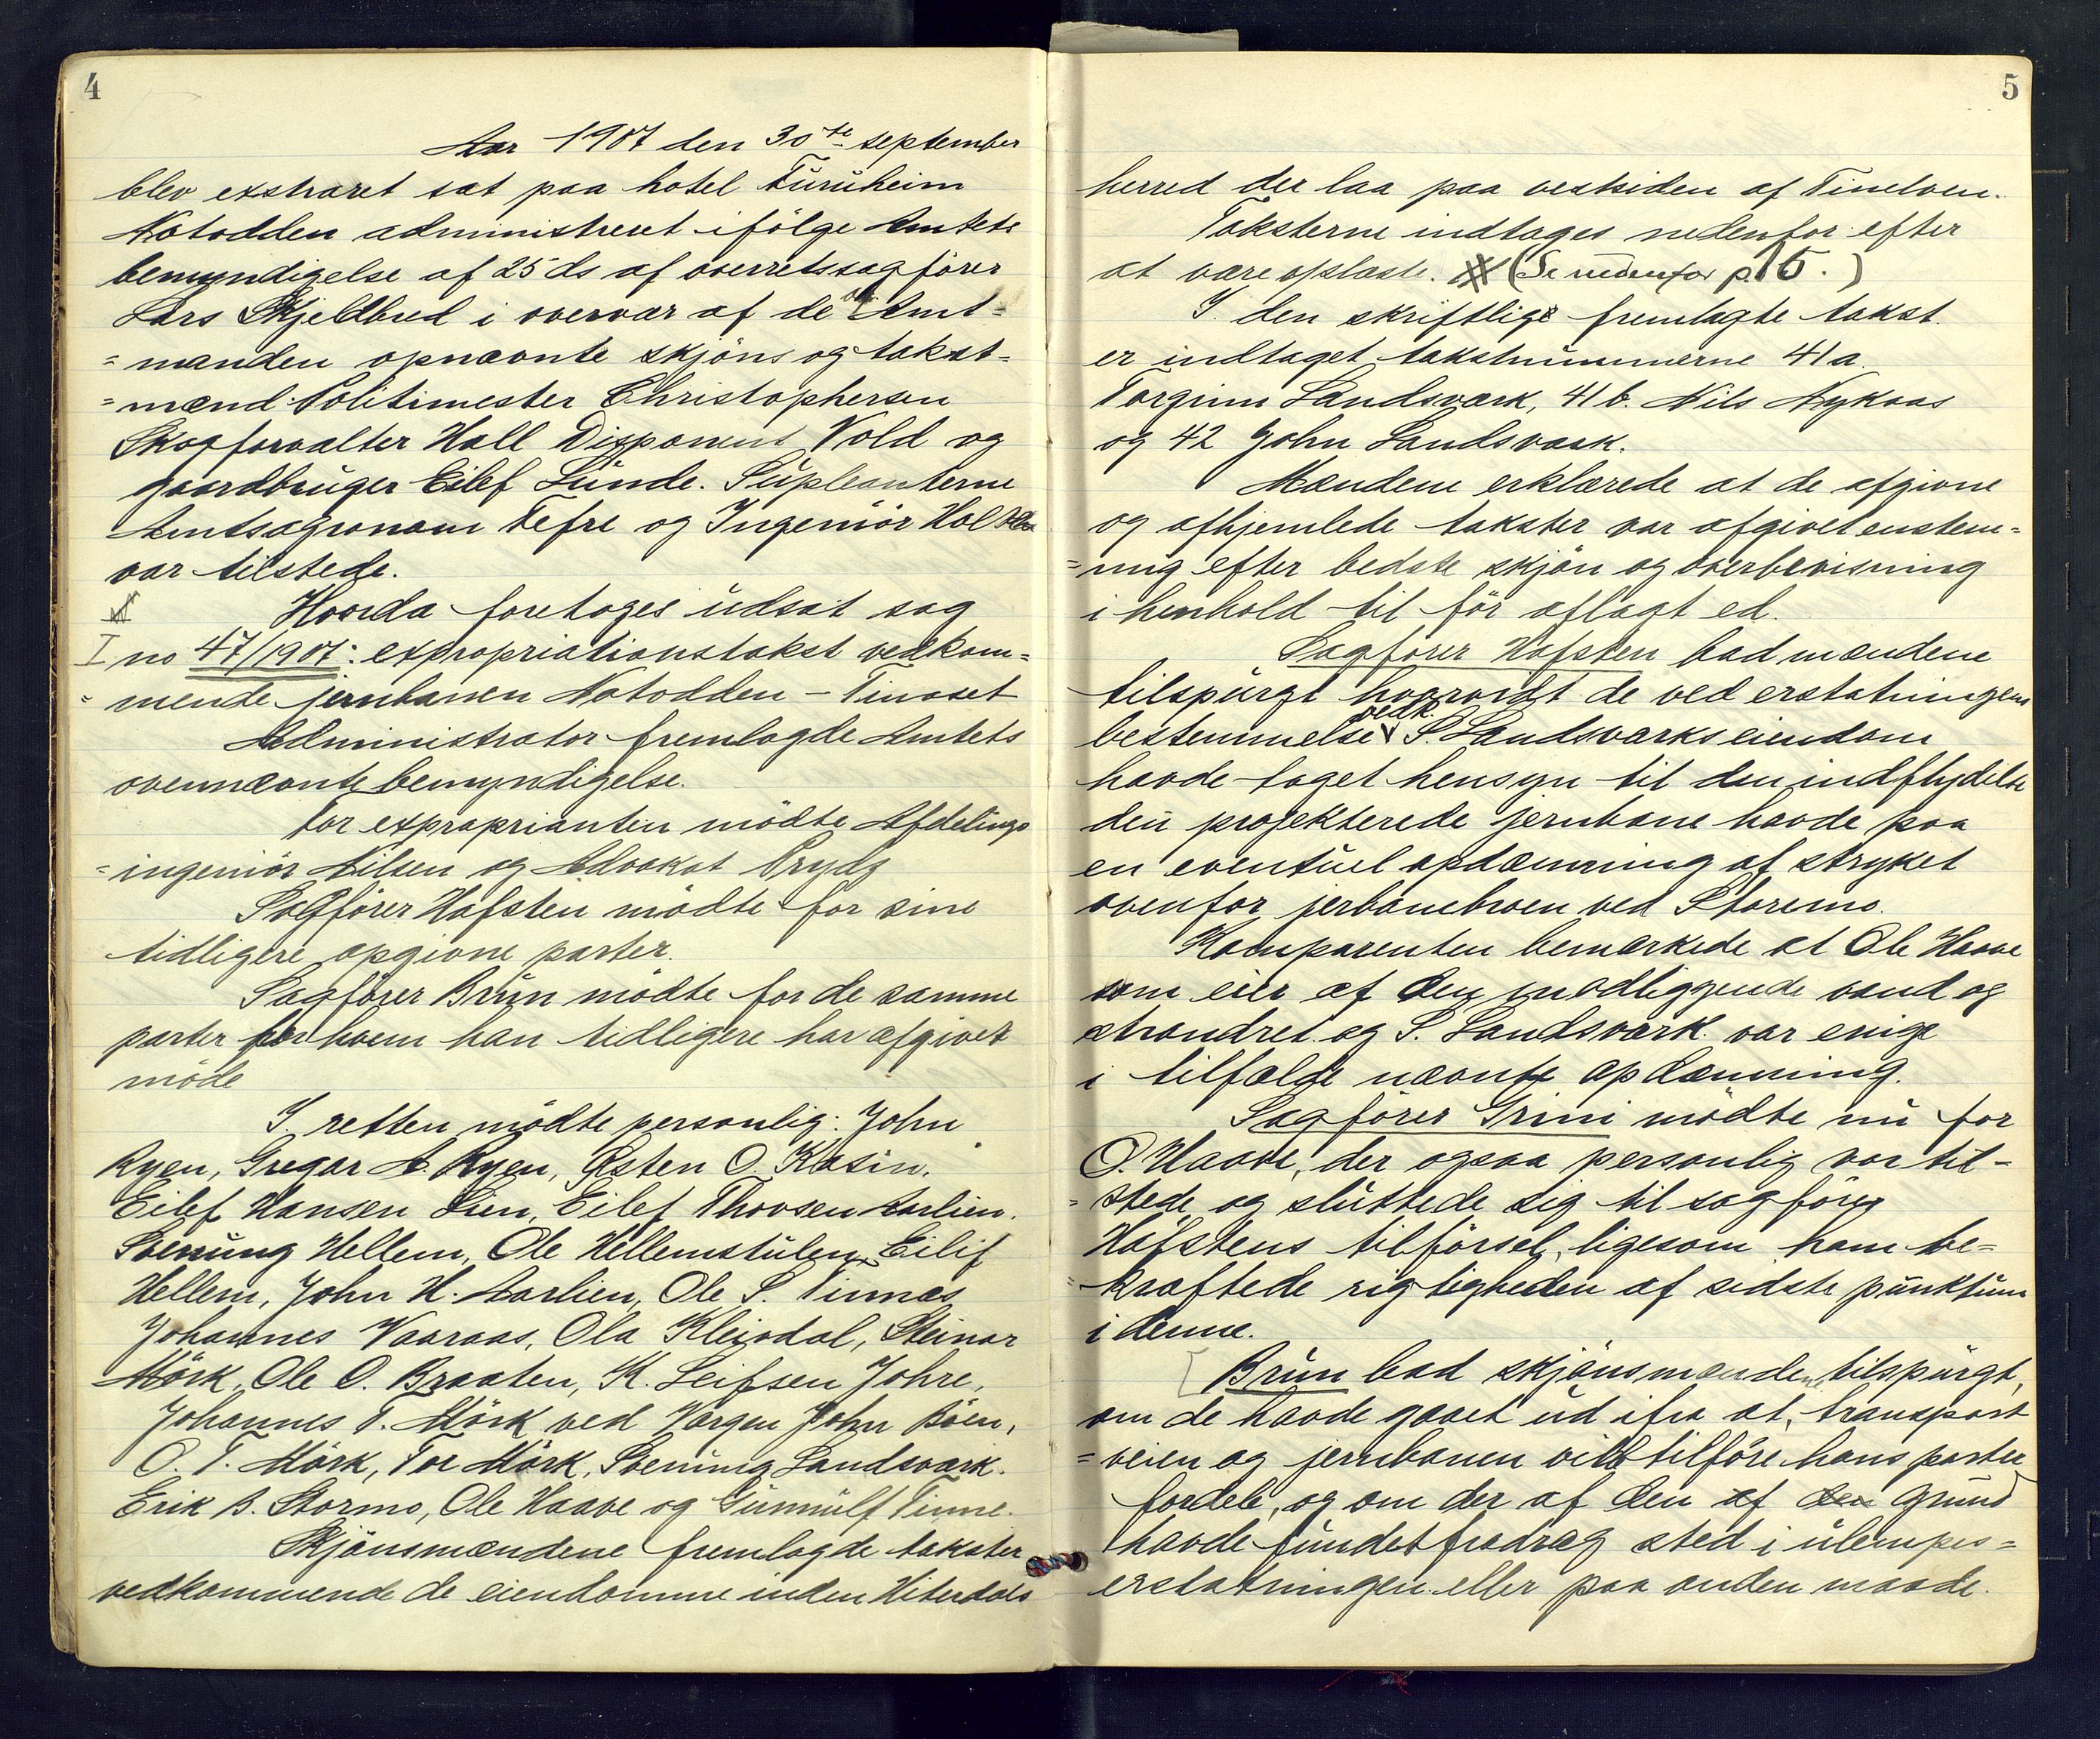 4
Aar 1907 den 30te september
blev extraret sat paa hotel Furuheim
Notodden administreret ifölge Amtets
bemyndigelse af 25 ds af overretssagförer
Lars Skjeldbred i overvær af de af Amt=
=manden opnævnte skjöns og takst=
=mænd Politimester Christophersen
Skogforvalter Hall Disponent Vold og
gaardbruger Eilef Lunde. Supleanterne
Amtsagronom Tefre og Ingeniör Holst
var tilstede.
Hvorda foretoges udsat sag
I no 47/1907: expropriationstakst vedkom=
=mende jernbanen Notodden - Tinoset
Administrator fremlagde Amtets
ovennævnte bemyndigelse.
For exproprianten mödte Afdelings
=ingeniör Nilsen og Advokat Pryds
Sagförer Hofsten mödte for sine
tidligere opgivne parter.
Sagförer Brun mödte for de samme
parter for hvem han tidligere har afgivet
möde
I retten mödte personlig: John
Ryen, Gregar A. Ryen, Östen O. Kasin,
Eilef Hansen Lien, Eilef Thovsen Aarlien.
Svenung Hellem, Ole Hellemstulen, Eilif
Hellem, John H. Aarlien, Ole S. Tinnæs
Johannes Vaaraas, Ola Kleivdal, Steinar
Mörk, Ole O. Braaten, K. Leifsen Johre,
Johannes T. Mörk ved Værgen John Böen,
O. T. Mörk, Tor Mörk, Svenung Landsværk.
Erik B. Stormo, Ole Haave og Gunnulf Tinne.
Skjönsmændene fremlagde takster
vedkommende de eiendomme inden Hiterdals
5
herred der laa paa vestsiden af Tinelven.
Taksterne indtages nedenfor efter
at være oplæste. # (Se nedenfor p. 15.)
I den skriftlige fremlagte takst
er indtaget takstnummerne 41a
Torgrim Landsværk, 41 b. Nils Nykaas
og 42 John Landsværk.
Mændene erklærede at de afgivne
og afhjemlede takster var afgivet enstem=
=mig efter bedste skjön og overbevisning
i henhold til för aflagt ed.
Sagförer Hofsten bad mændene
tilspurgt hvorvidt de ved erstatningens
bestemmelse vedk. S. Landsværks eiendom
havde taget hensyn til den indflydelse
den projekterede jernbane havde paa
en eventuel opdæmning af stryket
ovenfor jerbanebroen ved Storemo.
Komparenten bemærkede at Ole Haave
som eier af den modliggende vand og
strandret og S. Landsværk var enige
i tilfælde nævnte opdæmning.
Sagförer Grini mödte nu for
O. Haave, der ogsaa personlig var til-
=stede og sluttede sig til sagförer
Hofstens tilförsel, ligesom ham be=
=kræftede rigtigheden af sidste punktum
i denne.
Brun bad skjönsmændene tilspurgt,
om de havde gaaet ud ifra at, transport
=veien og jernbanen vilde tilföre hans parter
fordele, og om der af den af den grund
havde fundet fradrag sted i ulempes=
erstatningen eller paa anden maade.